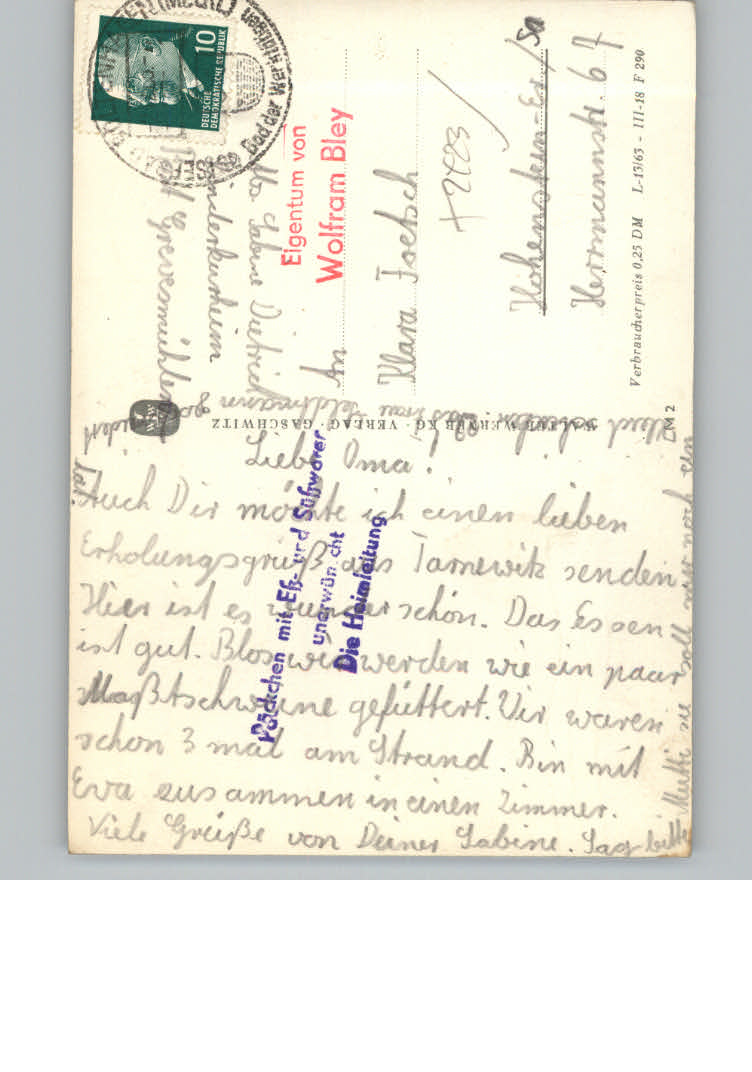 Liebe Oma!
Auch Dir möchte ich einen lieben
Erholungsgruß aus Tarnewitz senden
Hier ist es wunderschön. Das Essen
ist gut. Blos wir werden wie ein paar
Maßtschweine gefüttert. Wir waren
schon 3 mal am Strand. Bin mit
Eva zusammen in einen Zimmer.
Viele Grüße von Deiner Sabine. Sag bitte
Mutti sie soll mir noch ein
Kleid schicken
Päckchen mit Eß- und Süßwaren
unerwünscht
Die Heimleitung
WALTER WERNER KG · VERLAG · GASCHWITZ
Abs Sabine Dietrich
Kinderkurheim
Grevesmühlen
Eigentum von
Wolfram Bley
An
Klara
+2423/
Hohenstein-Er./Sa
Herrmannstr. 67
Verbraucherpreis 0,25 DM L-13/63 - III-18 F 290
M 2
10
DEUTSCHE
DEMOKRATISCHE REPUBLIK
Bad der Werktätigen